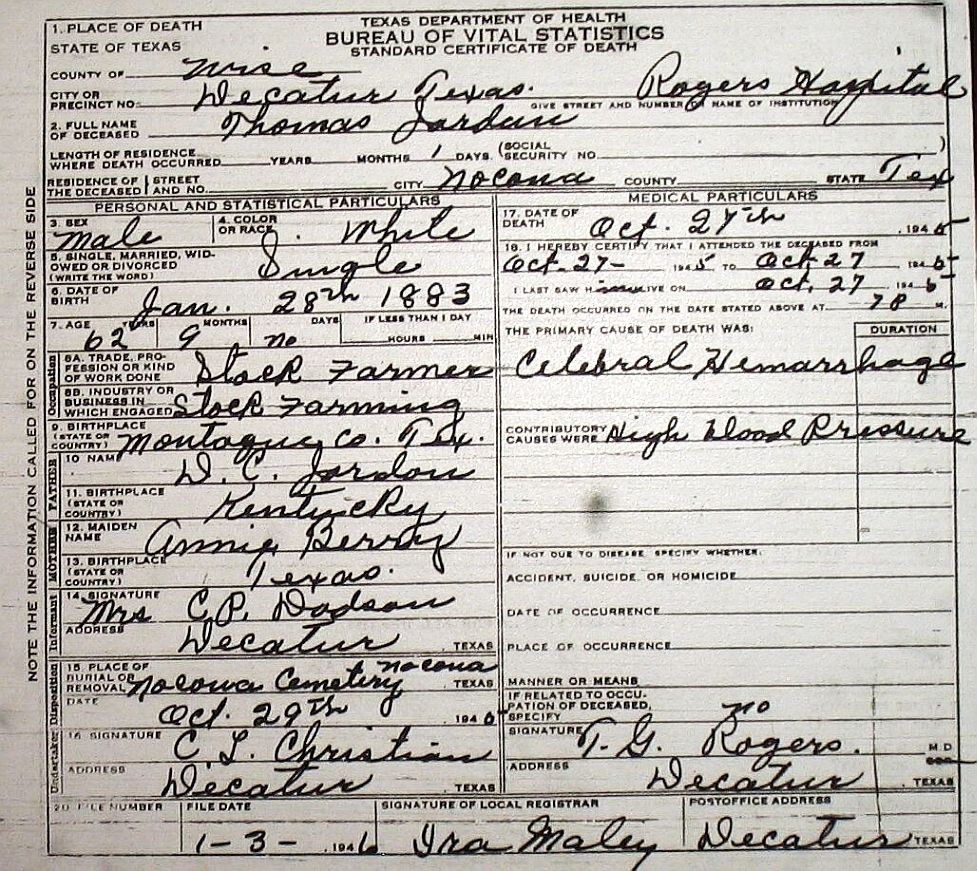 TEXAS DEPARTMENT OF HEALTH
BUREAU OF VITAL STATISTICS
STANDARD CERTIFICATE OF DEATH
1. PLACE OF DEATH
STATE OF TEXAS
COUNTY OF Wise
CITY OR PRECINCT NO. Decatur Texas. Rogers Hospital
GIVE STREET AND NUMBER OR NAME OF INSTITUTION
2. FULL NAME OF DECEASED Thomas Jordan
LENGTH OF RESIDENCE WHERE DEATH OCCURRED YEARS MONTHS 1 DAYS. (SOCIAL SECURITY NO. )
RESIDENCE OF THE DECEASED STREET AND NO. CITY Nocona COUNTY STATE Tex
NOTE THE INFORMATION CALLED FOR ON THE REVERSE SIDE
PERSONAL AND STATISTICAL PARTICULARS
3. SEX Male 4. COLOR OR RACE White
5. SINGLE, MARRIED, WIDOWED OR DIVORCED (WRITE THE WORD) Single
6. DATE OF BIRTH Jan. 28th 1883
7. AGE YEARS MONTHS DAYS IF LESS THAN 1 DAY
62 9 no HOURS MIN
Occupation
8A. TRADE, PROFESSION OR KIND OF WORK DONE Stock Farmer
8B. INDUSTRY OR BUSINESS IN WHICH ENGAGED Stock Farming
9. BIRTHPLACE (STATE OR COUNTRY) Montague Co. Tex.
FATHER
10 NAME D. C. Jordon
11. BIRTHPLACE (STATE OR COUNTRY) Kentucky
MOTHER
12. MAIDEN NAME Annie Berry
13. BIRTHPLACE (STATE OR COUNTRY) Texas.
Informant
14. SIGNATURE Mrs C. P. Dodson
ADDRESS Decatur TEXAS
Disposition
15. PLACE OF BURIAL OR REMOVAL Nocona Cemetery Nocona TEXAS
DATE Oct. 29th 1945
Undertaker
16. SIGNATURE C. L. Christian
ADDRESS Decatur TEXAS
MEDICAL PARTICULARS
17. DATE OF DEATH Oct. 27th 1945
18. I HEREBY CERTIFY THAT I ATTENDED THE DECEASED FROM
Oct. 27- 1945 TO Oct. 27 1945
I LAST SAW HIM ALIVE ON Oct. 27 1945
THE DEATH OCCURRED ON THE DATE STATED ABOVE AT M.
THE PRIMARY CAUSE OF DEATH WAS: DURATION
Celebral Hemarrhage
CONTRIBUTORY CAUSES WERE High blood Pressure
IF NOT DUE TO DISEASE, SPECIFY WHETHER:
ACCIDENT, SUICIDE, OR HOMICIDE
DATE OF OCCURRENCE
PLACE OF OCCURRENCE
MANNER OR MEANS
IF RELATED TO OCCUPATION OF DECEASED, SPECIFY no
SIGNATURE T. G. Rogers. M.D.
ADDRESS Decatur TEXAS
20. FILE NUMBER FILE DATE SIGNATURE OF LOCAL REGISTRAR POSTOFFICE ADDRESS
1-3- 1946 Ira Maley Decatur TEXAS